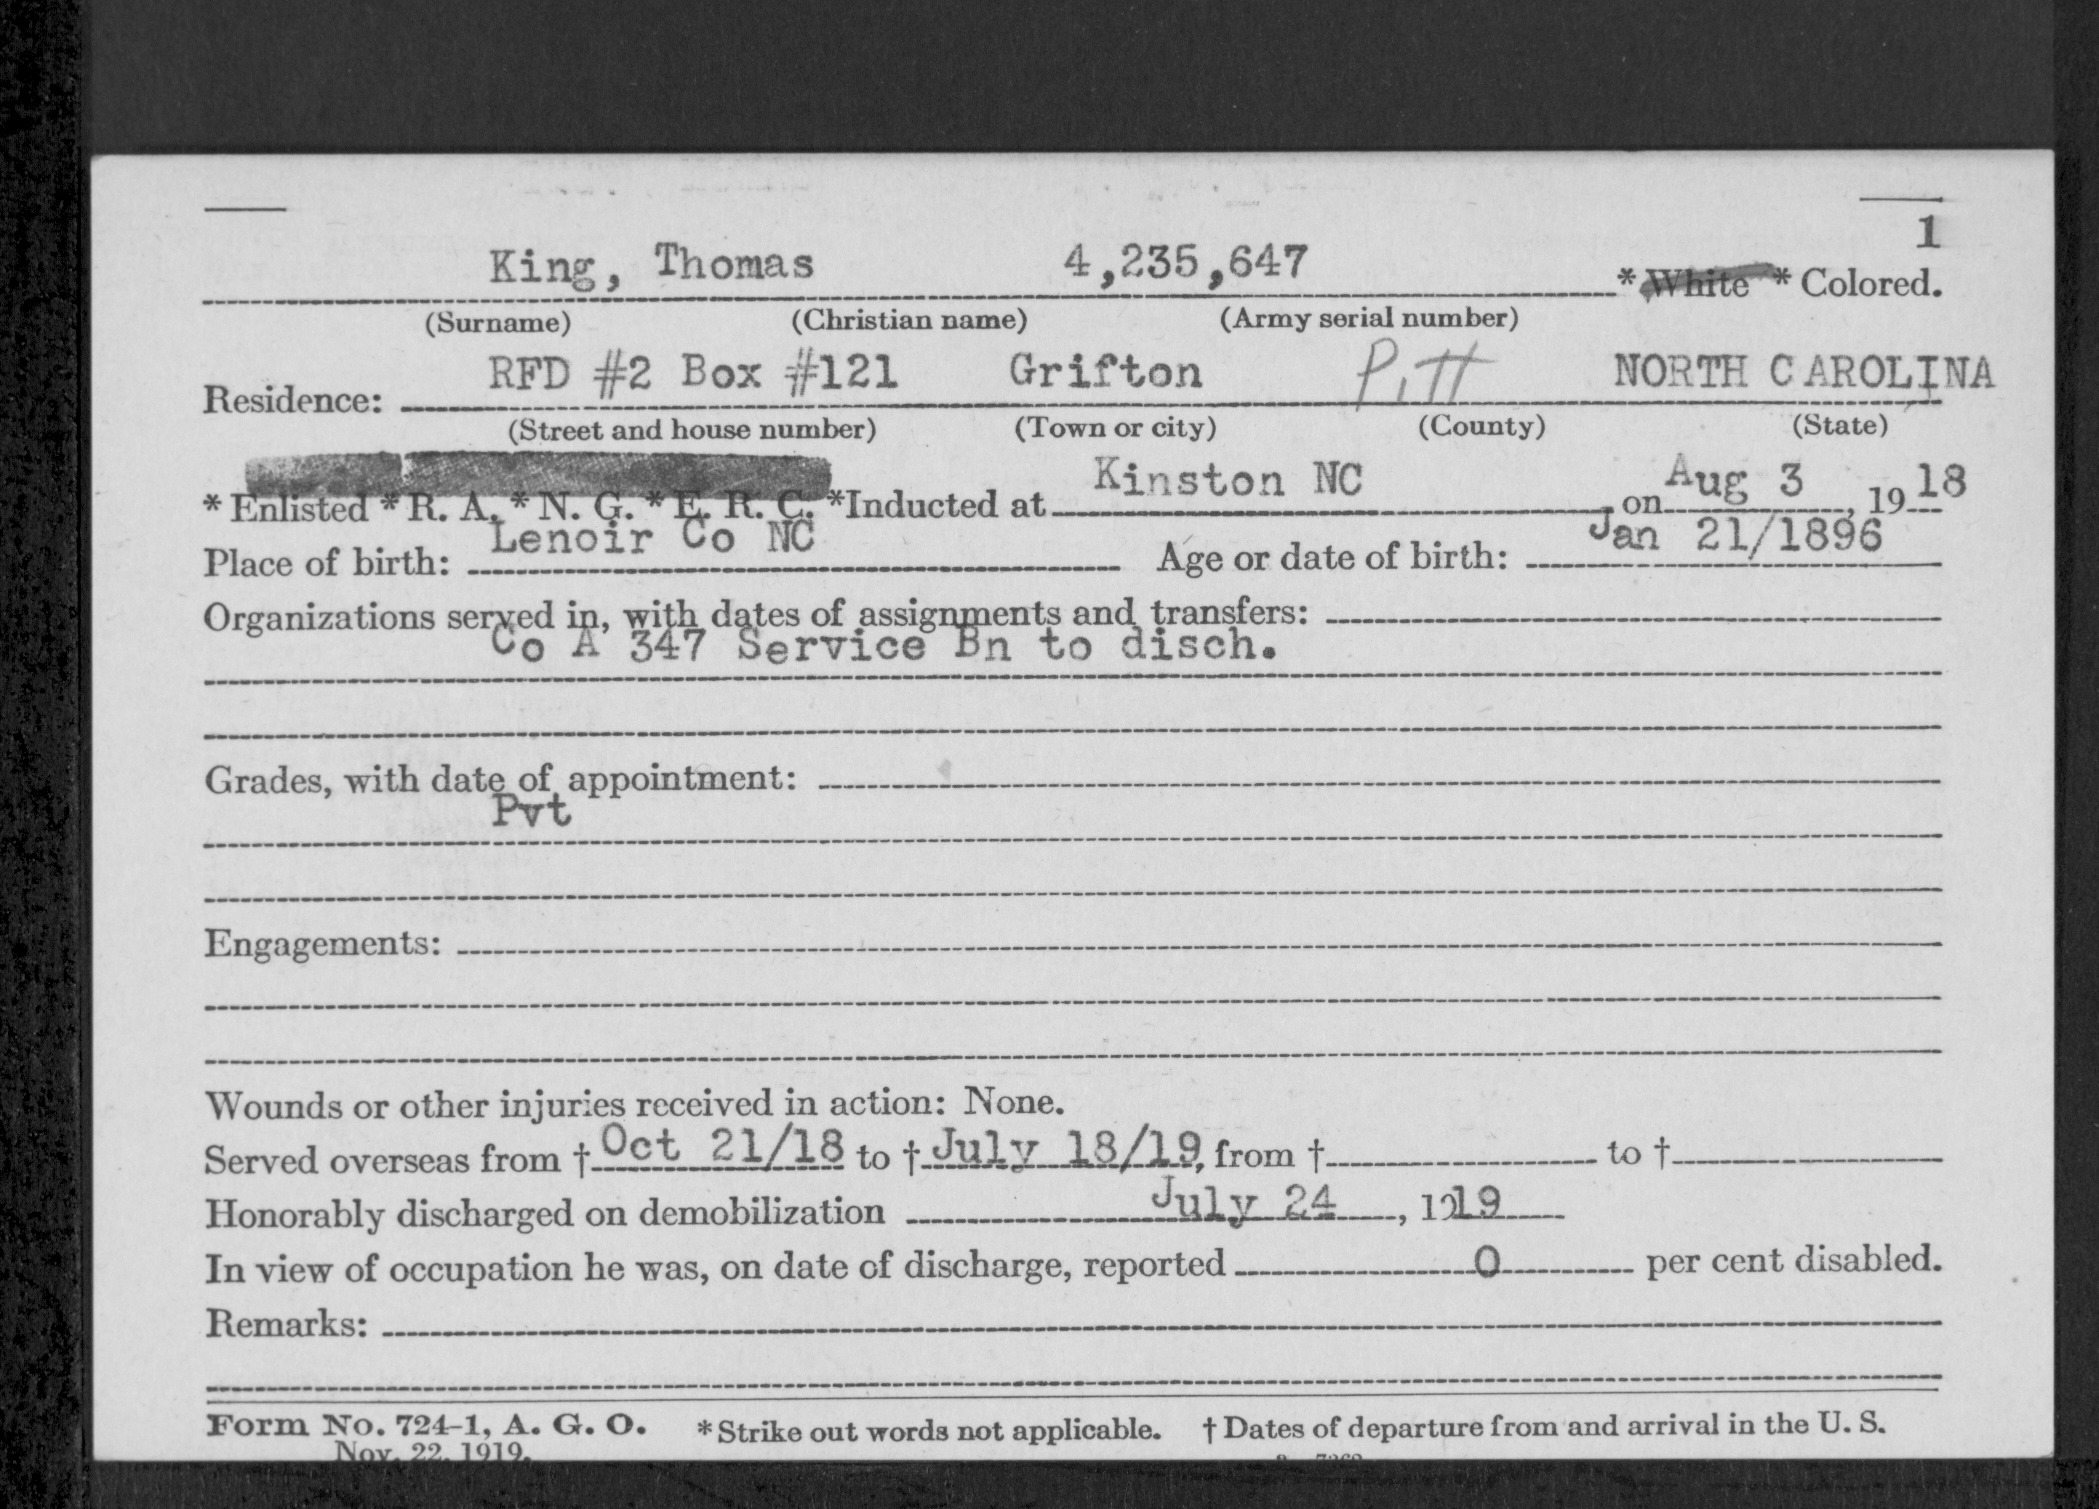 1
King, Thomas 4,235,647 * White * Colored.
(Surname) (Christian name) (Army serial number)
RFD #2 Box #121 Grifton Pitt NORTH CAROLINA
Residence:
(Street and house number) (Town or city) (County) (State)
* Enlisted * R. A. * N. G. * E. R. C. *Inducted at Kinston NC on Aug 3, 1918
Place of birth: Lenoir Co NC Age or date of birth: Jan 21/1896
Organizations served in, with dates of assignments and transfers:
Co A 347 Service Bn to disch.
Grades, with date of appointment:
Pvt
Engagements:
Wounds or other injuries received in action: None.
Served overseas from † Oct 21/18 to † July 18/19, from † to †
Honorably discharged on demobilization July 24, 1919
In view of occupation he was, on date of discharge, reported 0 per cent disabled.
Remarks:
Form No. 724-1, A. G. O. * Strike out words not applicable. † Dates of departure from and arrival in the U. S.
Nov. 22, 1919.